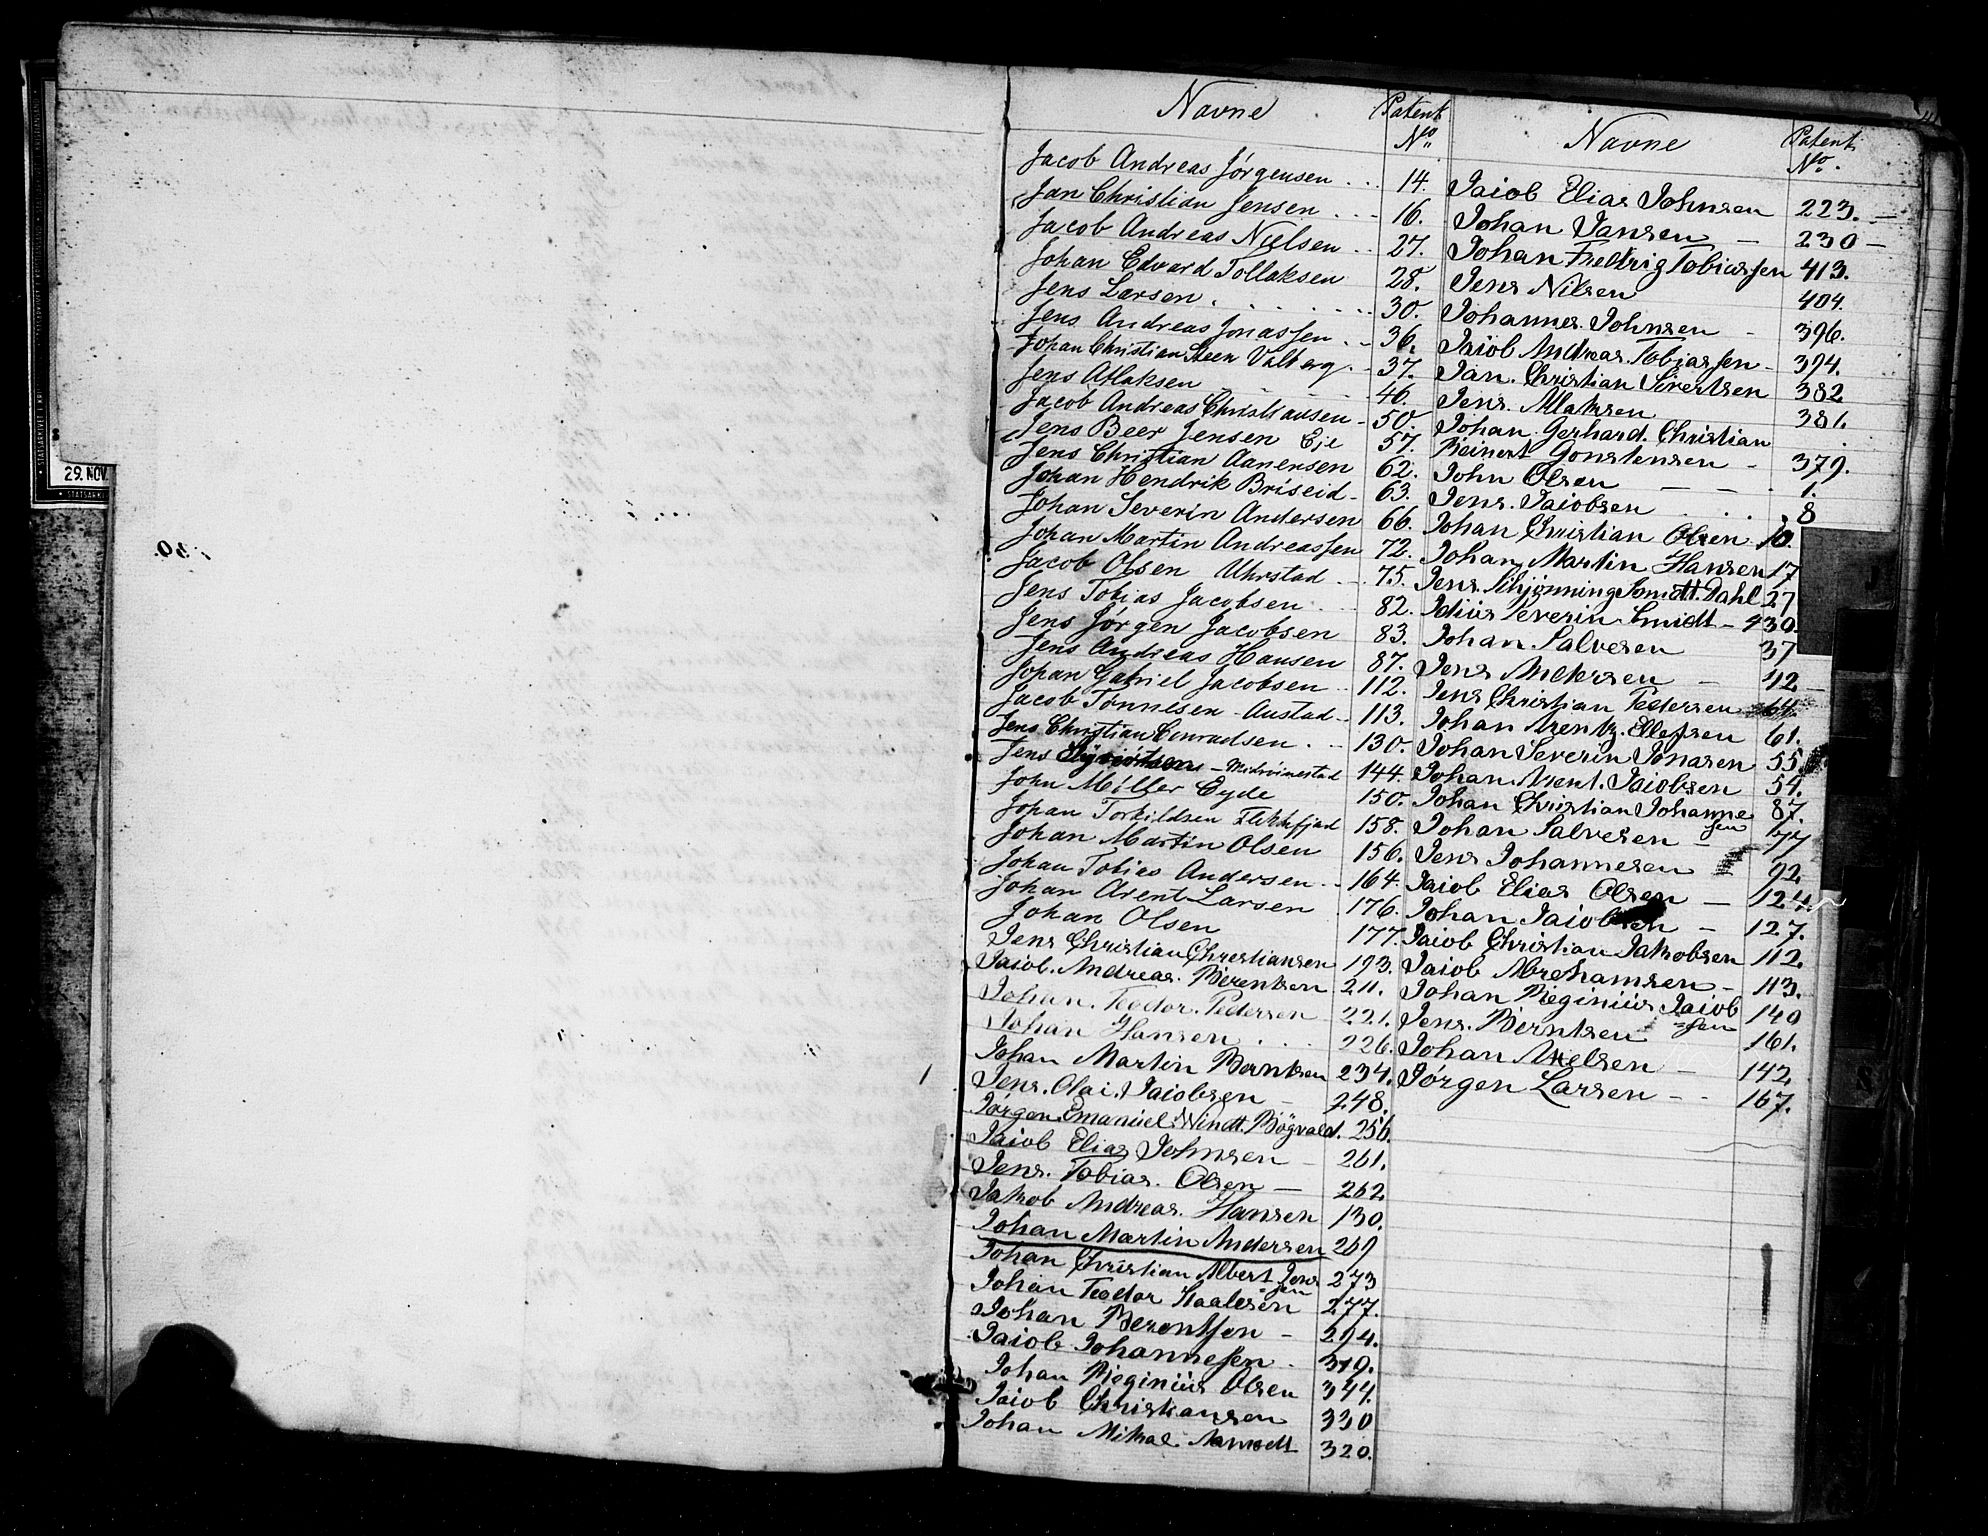 Navne Patent No.
Jacob Andreas Jørgensen . . . 14.
Jan Christian Jensen . . . 16.
Jacob Andreas Nielsen . . 27.
Johan Edvard Tollaksen 28.
Jens Larsen . . . . . . . 30.
Jens Andreas Jonassen . . 36.
Johan Christian Steen Valberg . . 37.
Jens Atlaksen 46.
Jacob Andreas Christiansen - 50.
Jens Beer Jensen Eje 57.
Jens Christian Aanensen 62.
Johan Hendrik Briseid - 63.
Johan Severin Andersen 66.
Johan Martin Andreassen 72.
Jacob Olsen Uhrstad . . . 75.
Jens Tobias Jacobsen . . 82.
Jens Jørgen Jacobsen 83.
Jens Andreas Hansen 87.
Johan Gabriel Jacobsen . . 112.
Jacob Tønnesen Austad . . 113.
Jens Christian Conradsen . . . 130.
Jens 144.
John Møller Eyde 150.
Johan Torkildsen Flekkefjord 158.
Johan Martin Olsen 156.
Johan Tobias Andersen . . 164.
Johan Arent Larsen . 176.
Johan Olsen 177.
Jens Christian Christiansen 193.
Jaiob. Andreas. Berentsen 211.
Johan. Teodor. Pedersen 221.
Johan Hansen . . . 226.
Johan Martin Berntsen 234.
Jens. Olai. Jaiobsen - 248.
Jørgen. Emanuel. Windt. Bøgvald. 256.
Jaiob Elias Johnsen - 261.
Jens. Tobias. Olsen - 262
Jakob Andreas. Hansen 130.
Johan Martin Andersen 269
Johan Christian Albert Jens-sen 273
Johan Teodor Staalesen 277.
Johan Berentsen - 294.
Jaiob Johannesen - 319.
Johan Reginius Olsen 344.
Jaiob Christiansen 330
Johan Mikal Aamodt 320.
Navne Patent No.
Jaiob Elias Johnsen 223. -
Johan Jansen - 230 -
Johan Fredrig Tobiassen 413.
Jens Nilsen 404.
Johannes. Johnsen - 396.
Jaiob Andreas. Tobiassen - 394.
Jan. Christian Sivertsen 382
Jens. Atlaksen 381.
Johan. Gerhard. Christian
Reinert Gonstensen - 379.
John Olsen - - - 1.
Jens. Jaiobsen . . . 8
Johan Christian Olsen 10.
Johan Martin Hansen 17
Jens. Schjønning Smidt. Dahl 27
Julius Severin Smidt - 430.
Johan. Salvesen 37
Jens Andersen - 42 -
Jens Christian Pedersen 64.
Johan Arentz. Ellefsen 61.
Johan Severin Jonasen 55
Johan. Arent. Jaiobsen 54.
Johan Christian Johannessen 87.
Johan Salvesen - 77
Jens Johannesen 92
Jaiob Elias Olsen - 124.
Johan Jaiobsen - 127.
Jaiob Christian Jakobsen 112.
Jaiob Abrehamsen - 113.
Johan Reginius Jaiob-sen 140
Jens. Berntsen 161.
Johan Nielsen - 142.
Jørgen Larsen - - 167.
29. NOV.